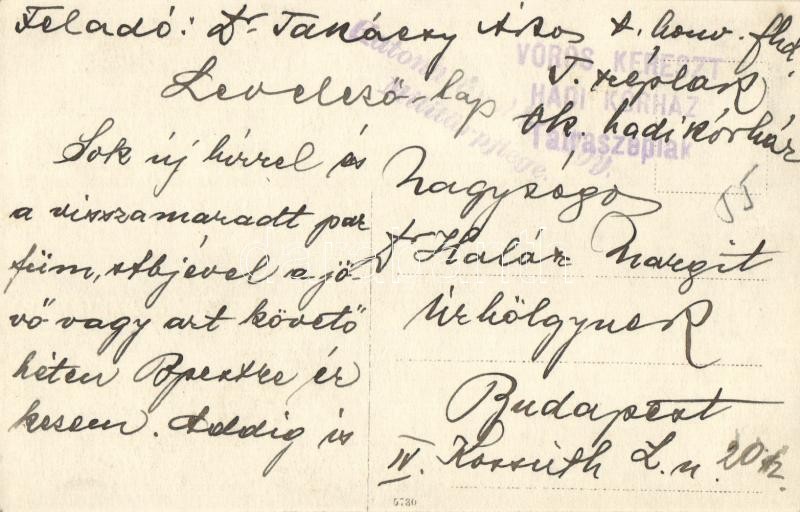 Feladó: Dr Takáczy Ákos t. honv. fhd.
T. széplak
Ok. hadikórház
Levelező-lap
VÖRÖS KERESZT
HADI KÓRHÁZ
Tátraszéplak
Sok új hírrel és
a visszamaradt par
füm, stbjével a jö-
vő vagy azt követő
héten Bpestre ér
kezem. Addig is
Nagyságos
Dr Halár Margit
Úrhölgynek
Budapest
IV. Kossuth L. u. 20
5730